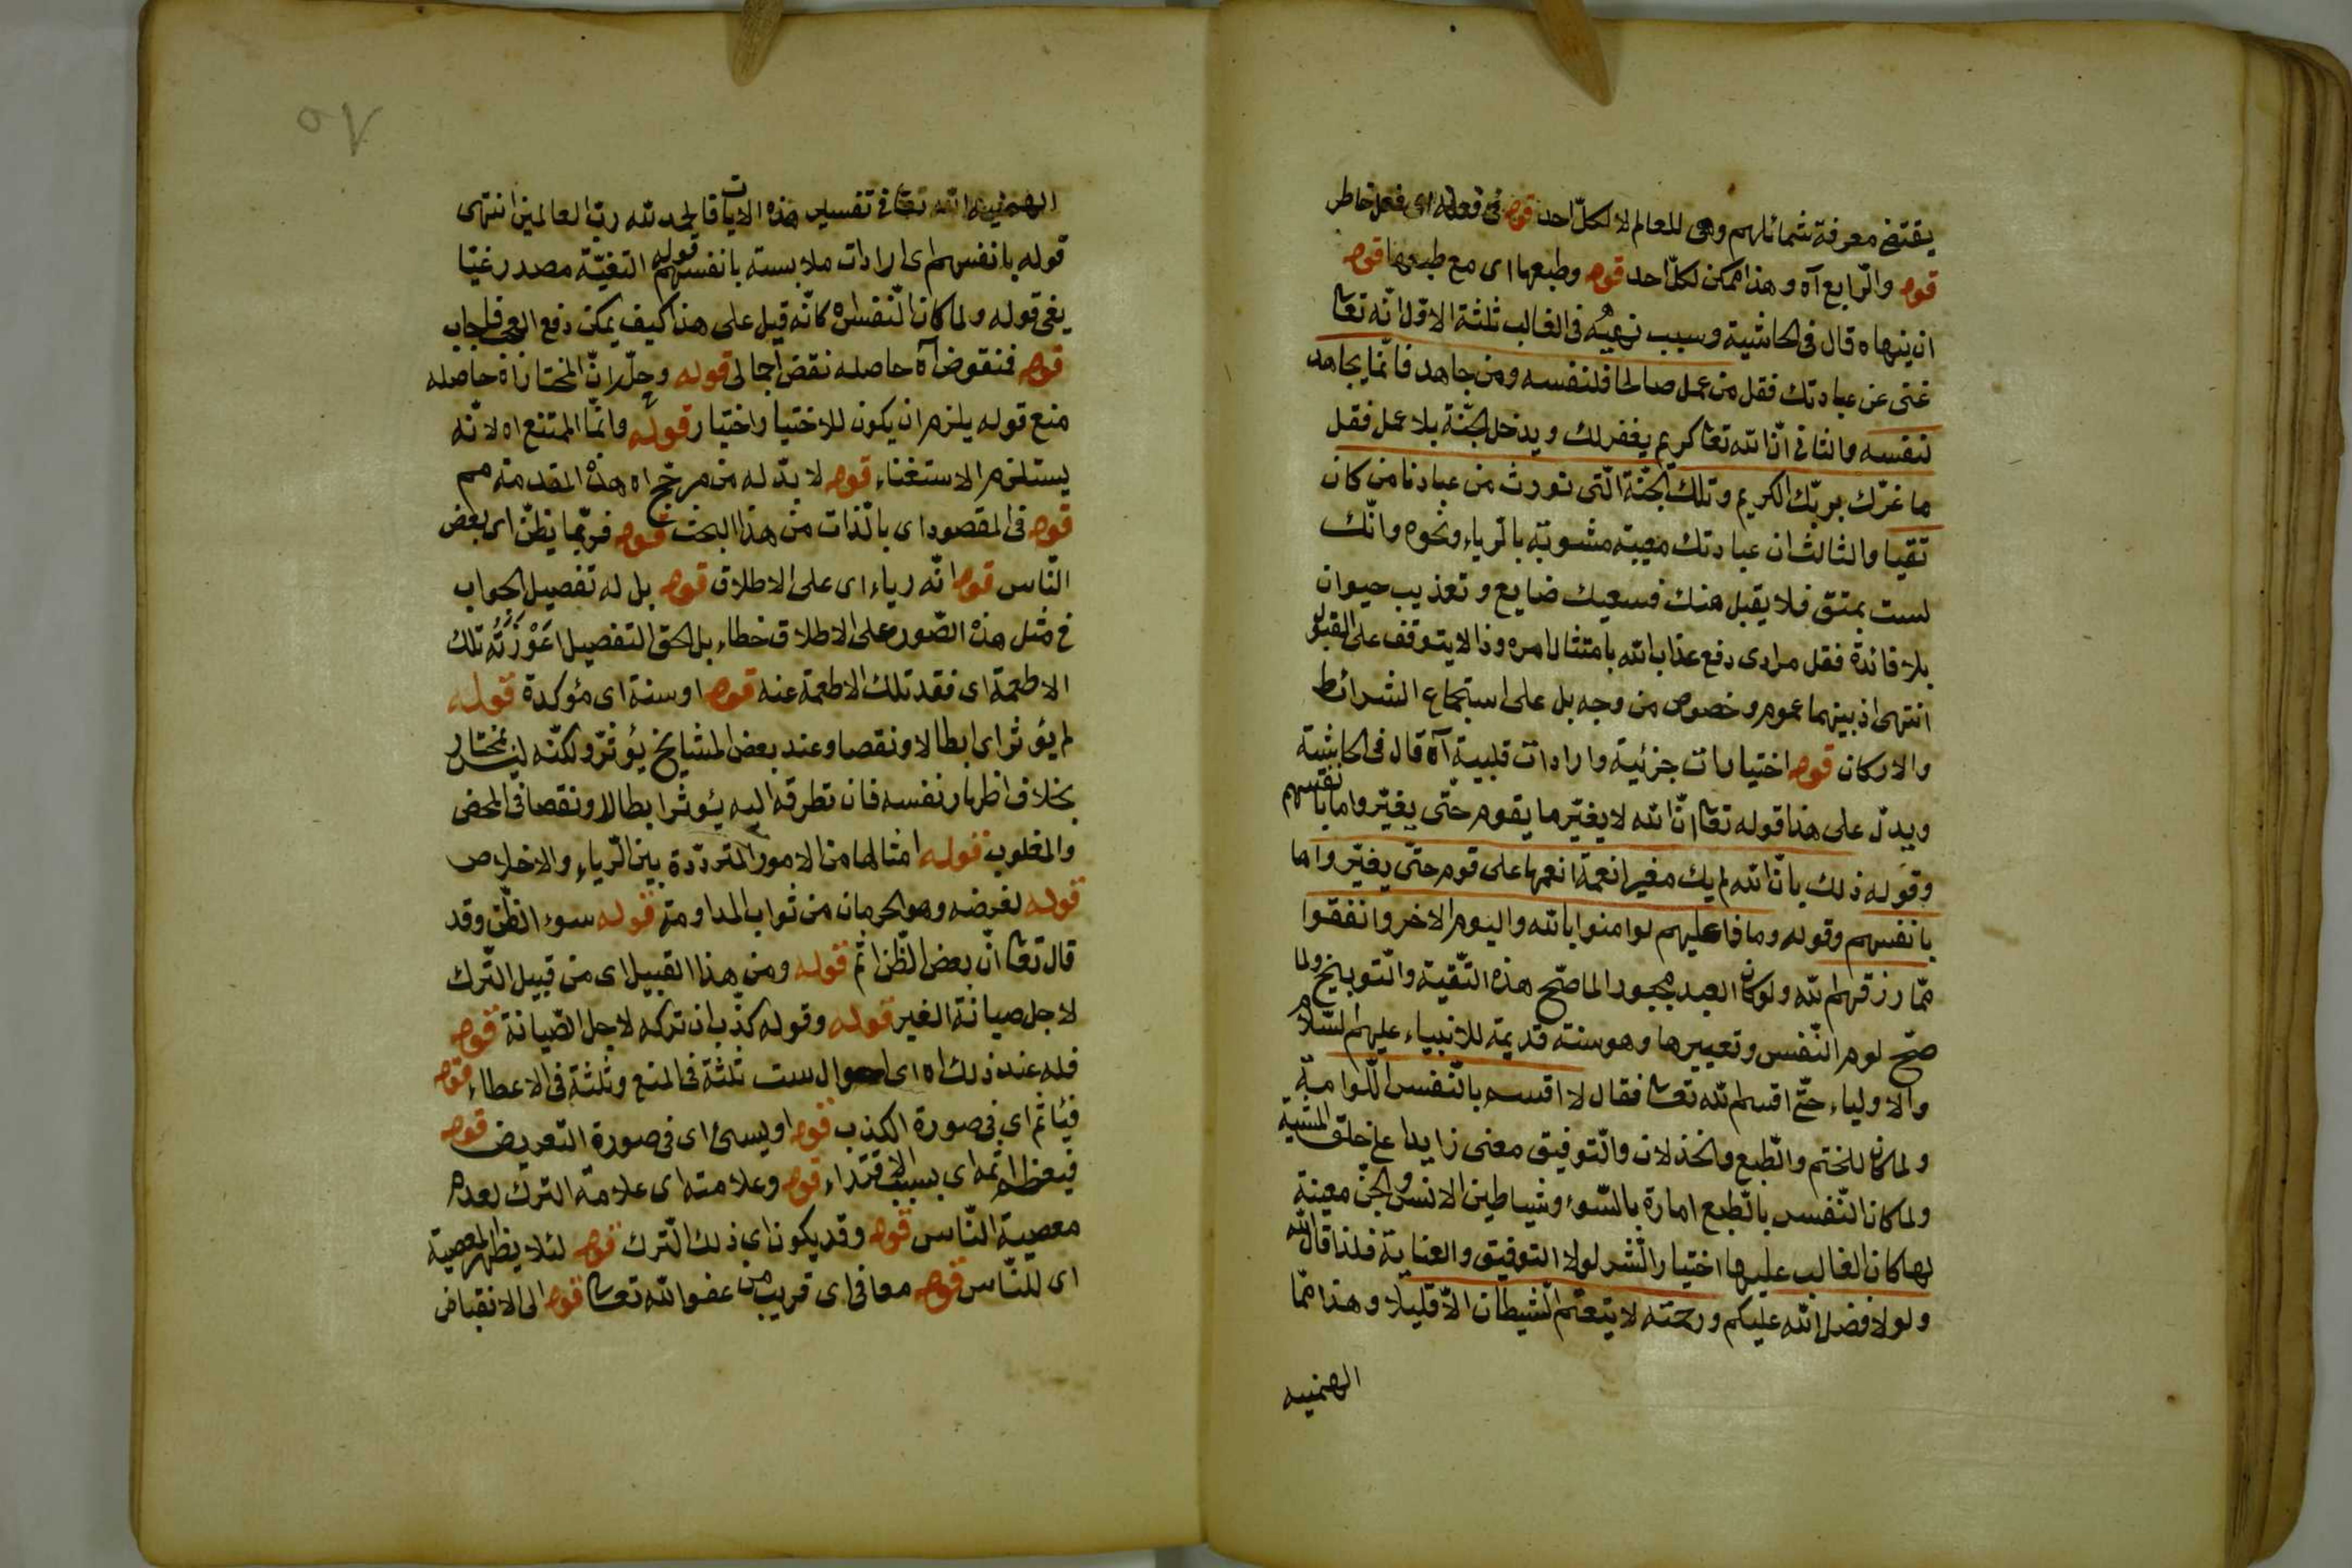 يقتضى معرفة شمائلهم وهى للعالم لا لكلّ احد قوله فى فعله اى فعل خاطر
قوله والرّابع آه وهذا ممكن لكلّ احد قوله وطبعها اى مع طبعها قوله
ان ينهاه قال فى الحاشية وسبب نهيه فى الغالب ثلثة الاوّل انّه تعا
غنى عن عبادتك فقل من عمل صالحا فلنفسه ومن جاهد فانّما يجاهد
لنفسه والثانى انّ الله تعا كريم يغفر لك ويدخل الجنّة بلا عمل فقل
ما غرّك بربّك الكريم وتلك الجنّة الّتى نورث من عبادنا من كان
تقيا والثالث ان عبادتك معيبة مشوبة بالرّياء ونحوه وانّك
لست بمتق فلا يقبل منك فسعيك ضايع وتعذيب حيوان
بلا فائدة فقل مرادى دفع عذاب الله بامتثال امره وذا لا يتوقف على القبول
انتهى اذ بينهما عموم وخصوص من وجه بل على استجماع الشرائط
والاركان قوله اختيارات جزئية وارادات قلبية آه قال فى الحاشية
ويدلّ على هذا قوله تعا انّ الله لا يغيّر ما بقوم حتّى يغيّروا ما بانفسهم
وقوله ذلك بانّ الله لم يك مغيرا نعمة انعمها على قوم حتّى يغيّروا ما
بانفسهم وقوله وما ذا عليهم لو امنوا بالله واليوم الاخر وانفقوا
ممّا رزقهم الله ولو كان العبد مجبورا لما صحّ هذه التّقية والتّوبيخ ولما
صحّ لوم النّفس وتعييرها وهو سنة قديمة للانبياء عليهم السّلام
والاولياء حتّى اقسم الله تعا فقال لا اقسم بالنّفس اللّوامة
ولما كان للختم والطّبع والخذلان والتّوفيق معنى زايدا على خلق المشية
ولما كان النّفس بالطّبع امارة بالسّوء وشياطين الانس والجنّ معينة
لها كان الغالب عليها اختيار الشّر لولا التوفيق والعناية فلذا قال الله
ولولا فضل الله عليكم ورحمته لاتبعتم الشيطان الاّ قليلا وهذا ممّا
الهمنيه
٥٧
الهمنيه الله تعا فى تفسير هذه الايات قالحمد لله ربّ العالمين انتهى
قوله بانفسهم اى ارادات ملابسته بانفسهم قوله التغيّة مصدر رغيّا
يغى قوله ولما كان النّفس اه كانّه قيل على هذا كيف يمكن دفع العجب فاجاب
قوله فنقوض آه حاصله نقض اجمالى قوله وحلّ لانّ المختار اه حاصله
منع قوله يلزم ان يكون للاختيار اختيار قوله وانّما الممتنع اه لانّه
يستلزم الاستغناء قوله لا بدّ له من مرجّح اه هذه المقدمة مم
قوله فى المقصود اى بالذّات من هذا البحث قوله فربّما يظنّ اى بعض
النّاس قوله انّه رياء اى على الاطلاق قوله بل له تفصيل الجواب
فى مثل هذه الصّور على الاطلاق خطاء بل الحق التفصيل اعْوَزَتْهُ تلك
الاطعمة اى فقد تلك الاطعمة عنه قوله او سنة اى مؤكدة قوله
لم يؤثر اى ابطالا ونقصا وعند بعض المشايخ يؤثرّ ولكنّه ليس بمختار
بخلاف اظهار نفسه فان تطرقه اليه يئوثر ابطالا ونقصا فى المحض
والمغلوب قوله امثالها من الامور المتردّدة بين الرّياء والاخلاص
قوله لغرضه وهو الحرمان من ثواب المداومة قوله سوء الظّن وقد
قال تعا انّ بعض الظّن اثم قوله ومن هذا القبيل اى من قبيل التّرك
لاجل صيانة الغير قوله وقوله كذّب ان تركه لاجل الصّيانة قوله
فله عند ذلك اه اى احوال ست ثلثة فى المنع وثلثة فى الاعطاء قوله
فيأثم اى فى صورة الكذب قوله او يسئ اى فى صورة التعريض قوله
فيعظم اثمه اى بسبب الاقتداء قوله وعلامته اى علامة الترك لعدم
معصية النّاس قوله وقد يكون اى ذلك الترك قوله لئلا يظهر المعصية
اى للنّاس قوله معافى اى قريب من عفو الله تعا قوله الى الانقباض